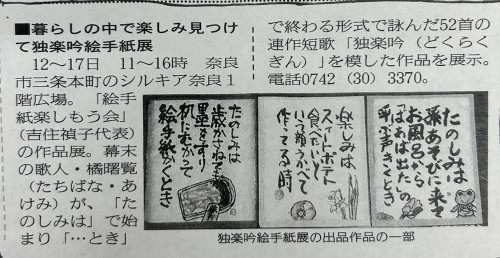 ■暮らしの中で楽しみ見つけ
て独楽吟絵手紙展
12〜17日 11〜16時 奈良
市三条本町のシルキア奈良1
階広場。「絵手
紙楽しもう会」
(吉住禎子代表)
の作品展。幕末
の歌人・橘曙覧
(たちばな・あ
けみ)が、「た
のしみは」で始
まり「…とき」
で終わる形式で詠んだ52首の
連作短歌「独楽吟(どくらく
ぎん)」を模した作品を展示。
電話0742(30)3370。
たのしみは
歳かさねても
墨をすり
机にむかって
絵手紙かくとき
楽しみは
スイートポテト
食べたいと
いう顔うかべて
作ってる時
たのしみは
孫あそびに来て
お風呂から
「ばぁば出た」の
呼ぶ声きくとき
独楽吟絵手紙展の出品作品の一部